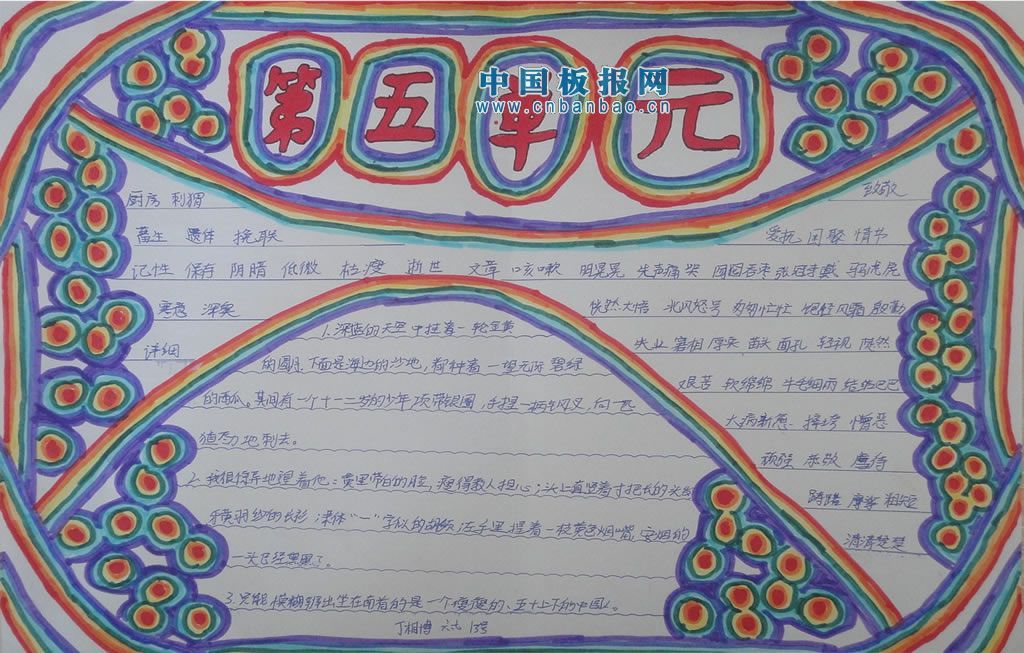 第五单元
中国板报网
www.cnbanbao.cn
厨房 刺猬
致敬
畜生 遗体 挽联
爱抚 团聚 情节
记性 保存 阴暗 低微 枯瘦 逝世 文章 咳嗽 明晃晃 失声痛哭 囫囵吞枣 张冠李戴 马虎
寒意 深奥
恍然大悟 北风怒号 匆匆忙忙 饱经风霜 殷勤
详细
失业 窘相 厚实 苗头 面孔 轻视 陡然
艰苦 软绵绵 牛毛细雨 结结巴巴
大病新愈 摔垮 憎恶
顽强 乐敬 虐待
踌躇 摩挲 粗短
清清楚楚
1.深蓝的天空中挂着一轮金黄
的圆月,下面是海边的沙地,都种着一望无际碧绿
的西瓜。其间有一个十一二岁的少年,项带银圈,手捏一柄钢叉,向一匹
猹尽力地刺去。
2.我很惊异地望着他:黄里带白的脸,瘦得教人担心;头上直竖着寸把长的头发
牙黄羽纱的长衫;隶体“一”字似的胡须;左手里捏着一枝黄色烟嘴,安烟的
一头已经熏黑了。
3.只能模糊辨出坐在南首的是一个瘦瘦的、五十上下的中国人。
丁相博 六七 13号